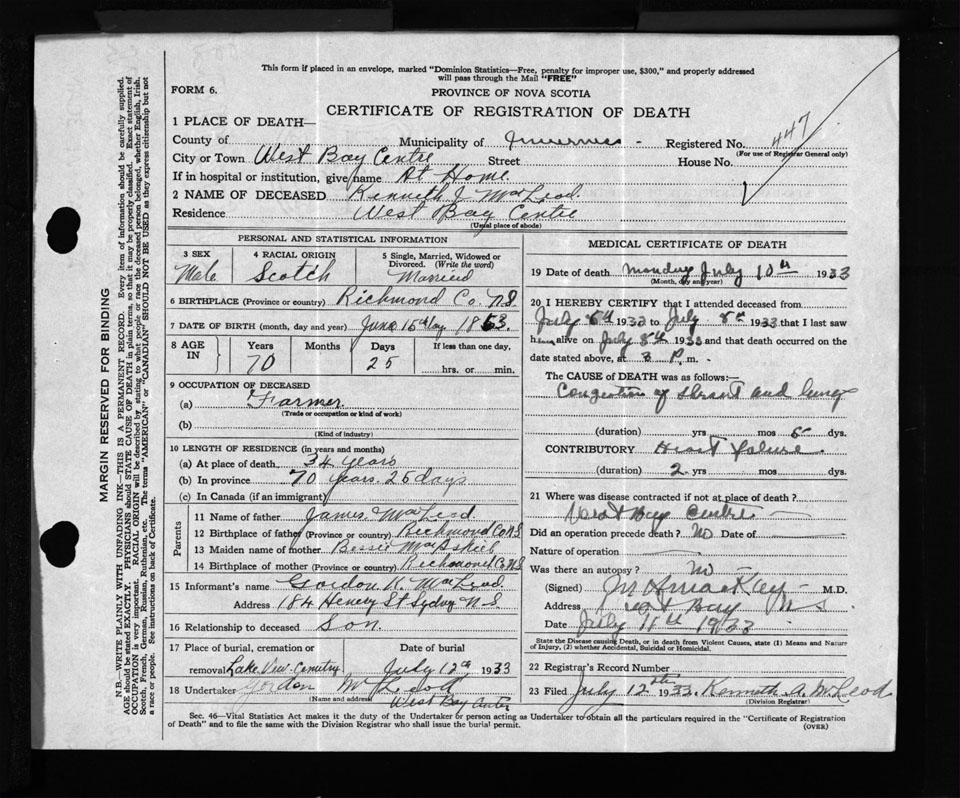 This form if placed in an envelope, marked "Dominion Statistics—Free, penalty for improper use, $300," and properly addressed
will pass through the Mail "FREE"
FORM 6.
PROVINCE OF NOVA SCOTIA
CERTIFICATE OF REGISTRATION OF DEATH
447
1 PLACE OF DEATH—
County of Municipality of Inverness - Registered No.
(For use of Registrar General only)
City or Town West Bay Centre Street House No.
If in hospital or institution, give name At Home.
2 NAME OF DECEASED Kenneth J. MacLeod.
Residence West Bay Centre
(Usual place of abode)
PERSONAL AND STATISTICAL INFORMATION
3 SEX Male
4 RACIAL ORIGIN Scotch
5 Single, Married, Widowed or Divorced. (Write the word) Married
6 BIRTHPLACE (Province or country) Richmond Co. N.S.
7 DATE OF BIRTH (month, day and year) June 15th day 1863.
8 AGE IN Years Months Days If less than one day,
70 25 hrs. or min.
9 OCCUPATION OF DECEASED
(a) Farmer
(Trade or occupation or kind of work)
(b)
(Kind of industry)
10 LENGTH OF RESIDENCE (in years and months)
(a) At place of death 34 years
(b) In province 70 years. 25 days.
(c) In Canada (if an immigrant)
Parents
11 Name of father James MacLeod.
12 Birthplace of father (Province or country) Richmond Co N.S
13 Maiden name of mother Bessie MacAskill
14 Birthplace of mother (Province or country) Richmond Co. N.S
15 Informant's name Gordon K. MacLeod.
Address 184 Henery St Sydney N.S.
16 Relationship to deceased Son.
17 Place of burial, cremation or removal Lake View Cemetry. Date of burial July 12th 1933
18 Undertaker Gordon McLeod
(Name and address) West Bay Center
MEDICAL CERTIFICATE OF DEATH
19 Date of death Monday July 10th 1933
(Month, day and year)
20 I HEREBY CERTIFY that I attended deceased from
July 6th 1933 to July 8th 1933 that I last saw
him alive on July 8th 1933 and that death occurred on the
date stated above, at 3 P. m.
The CAUSE of DEATH was as follows:—
Congestion of and lungs
(duration) yrs mos dys.
CONTRIBUTORY Heart failure.
(duration) 2 yrs mos dys.
21 Where was disease contracted if not at place of death?
West Bay Centre
Did an operation precede death? No Date of
Nature of operation
Was there an autopsy? no
(Signed) M.D.
Address West Bay N S
Date July 11th 1933
State the Disease causing Death, or in death from Violent Causes, state (1) Means and Nature
of Injury, (2) whether Accidental, Suicidal or Homicidal.
22 Registrar's Record Number
23 Filed July 12th 1933. Kenneth A. McLeod
(Division Registrar)
Sec. 46—Vital Statistics Act makes it the duty of the Undertaker or person acting as Undertaker to obtain all the particulars required in the "Certificate of Registration
of Death" and to file the same with the Division Registrar who shall issue the burial permit.
(OVER)
MARGIN RESERVED FOR BINDING
N.B.—WRITE PLAINLY WITH UNFADING INK—THIS IS A PERMANENT RECORD. Every item of information should be carefully supplied.
AGE should be stated EXACTLY. PHYSICIANS should STATE CAUSE OF DEATH in plain terms, so that it may be properly classified. Exact statement of
OCCUPATION is very important. RACIAL ORIGIN will be described by stating to what people or race the deceased person belonged, whether English, Irish,
Scotch, French, German, Russian, Ruthenian, etc. The terms "AMERICAN" or "CANADIAN" SHOULD NOT BE USED as they express citizenship but not
a race or people. See instructions on back of Certificate.